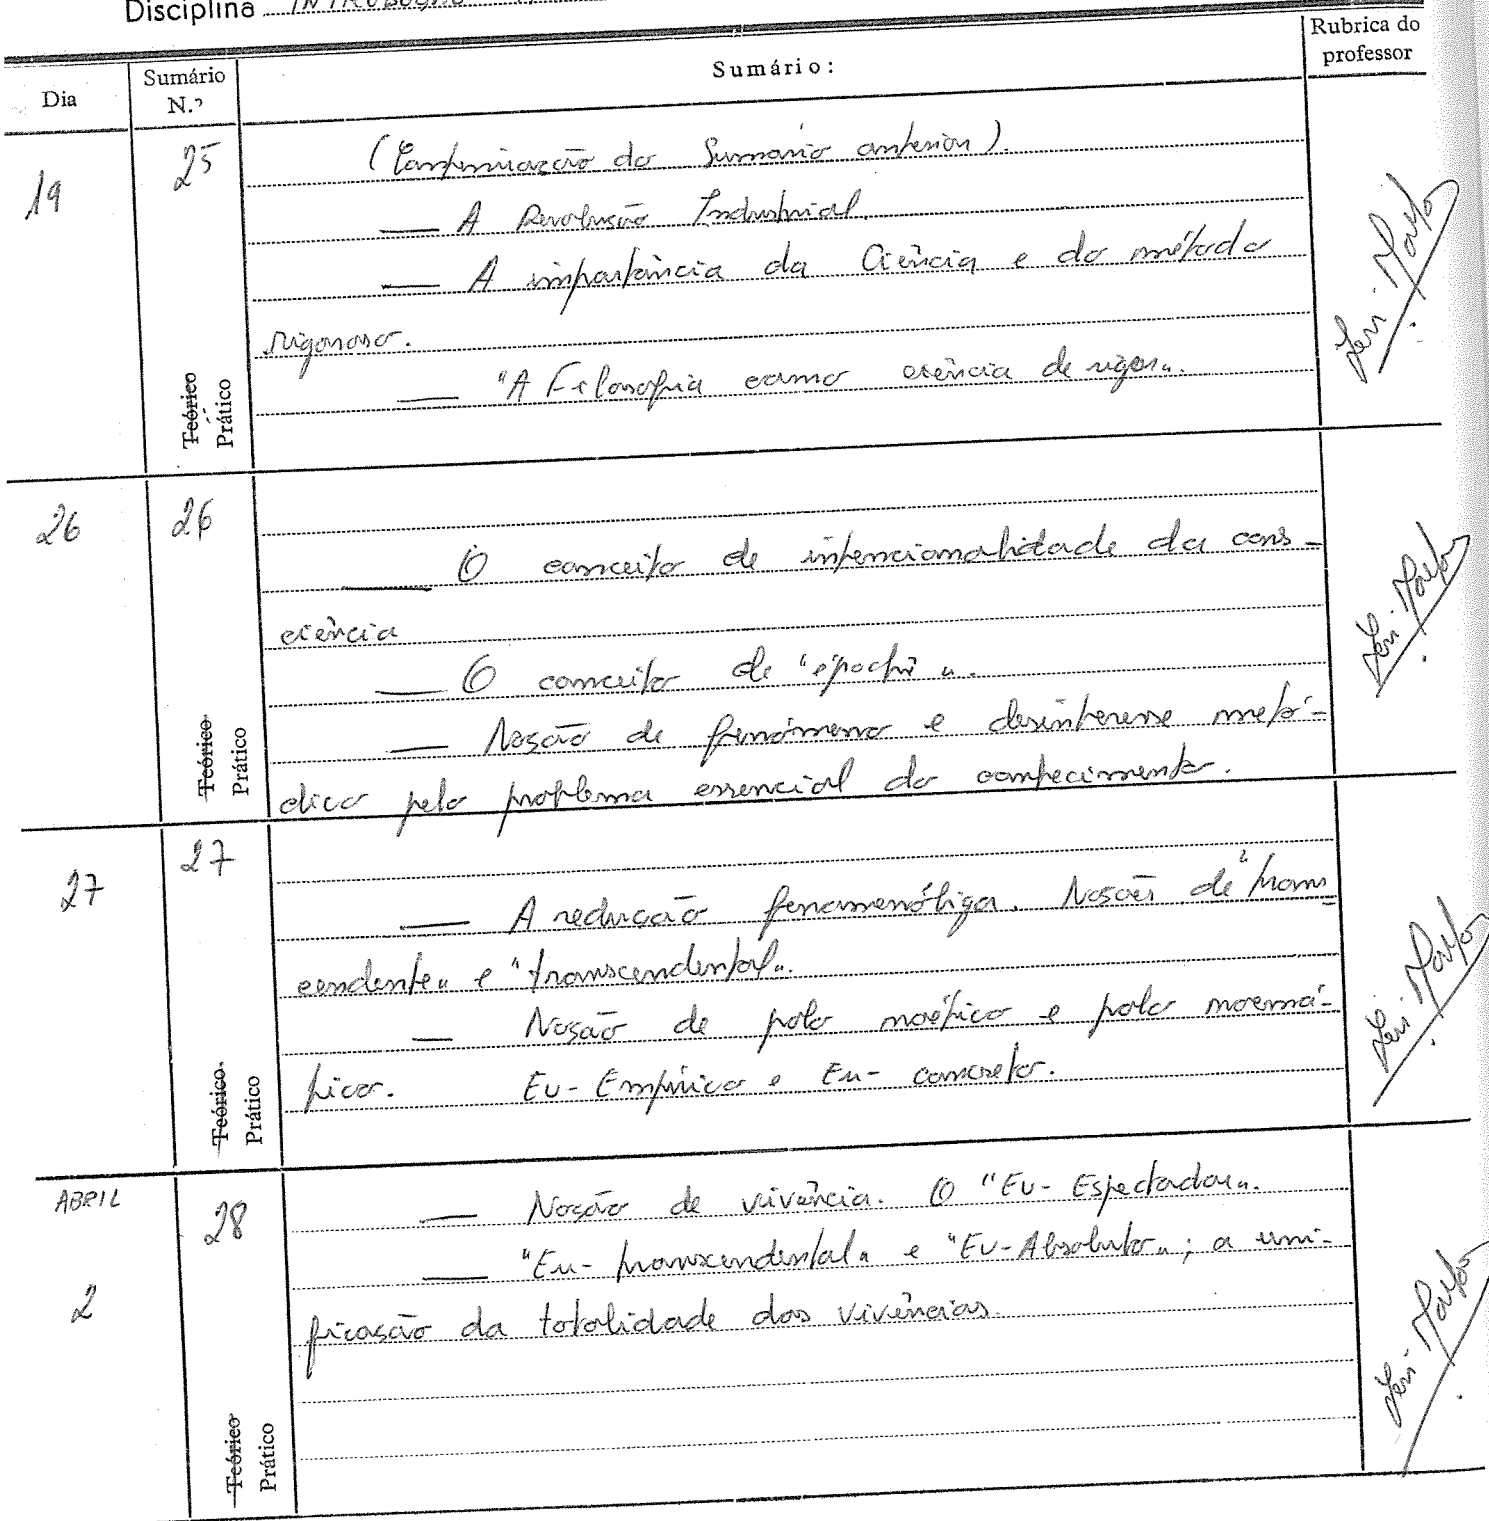 Disciplina INTRODUÇÃO
Dia
Sumário N.º
Sumário:
Rubrica do professor
19
25
Teórico
Prático
(Continuação do Sumário anterior).
— A Revolução Industrial.
— A importância da Ciência e do método
rigoroso.
— "A Filosofia como ciência de rigor".
26
26
Teórico
Prático
— O conceito de intencionalidade da cons-
ciência
— O conceito de "épochê".
— Noção de fenómeno e desinteresse metó-
dico pelo problema essencial do conhecimento.
27
27
Teórico
Prático
— A redução fenomenóliga. Noções de "trans-
cendente" e "transcendental".
— Noção de polo noético e polo noemá-
tico. Eu-Empírico e Eu-concreto.
ABRIL
2
28
Teórico
Prático
— Noção de vivência. O "Eu-Espectador".
— "Eu-transcendental" e "Eu-Absoluto"; a uni-
ficação da totalidade das vivências.